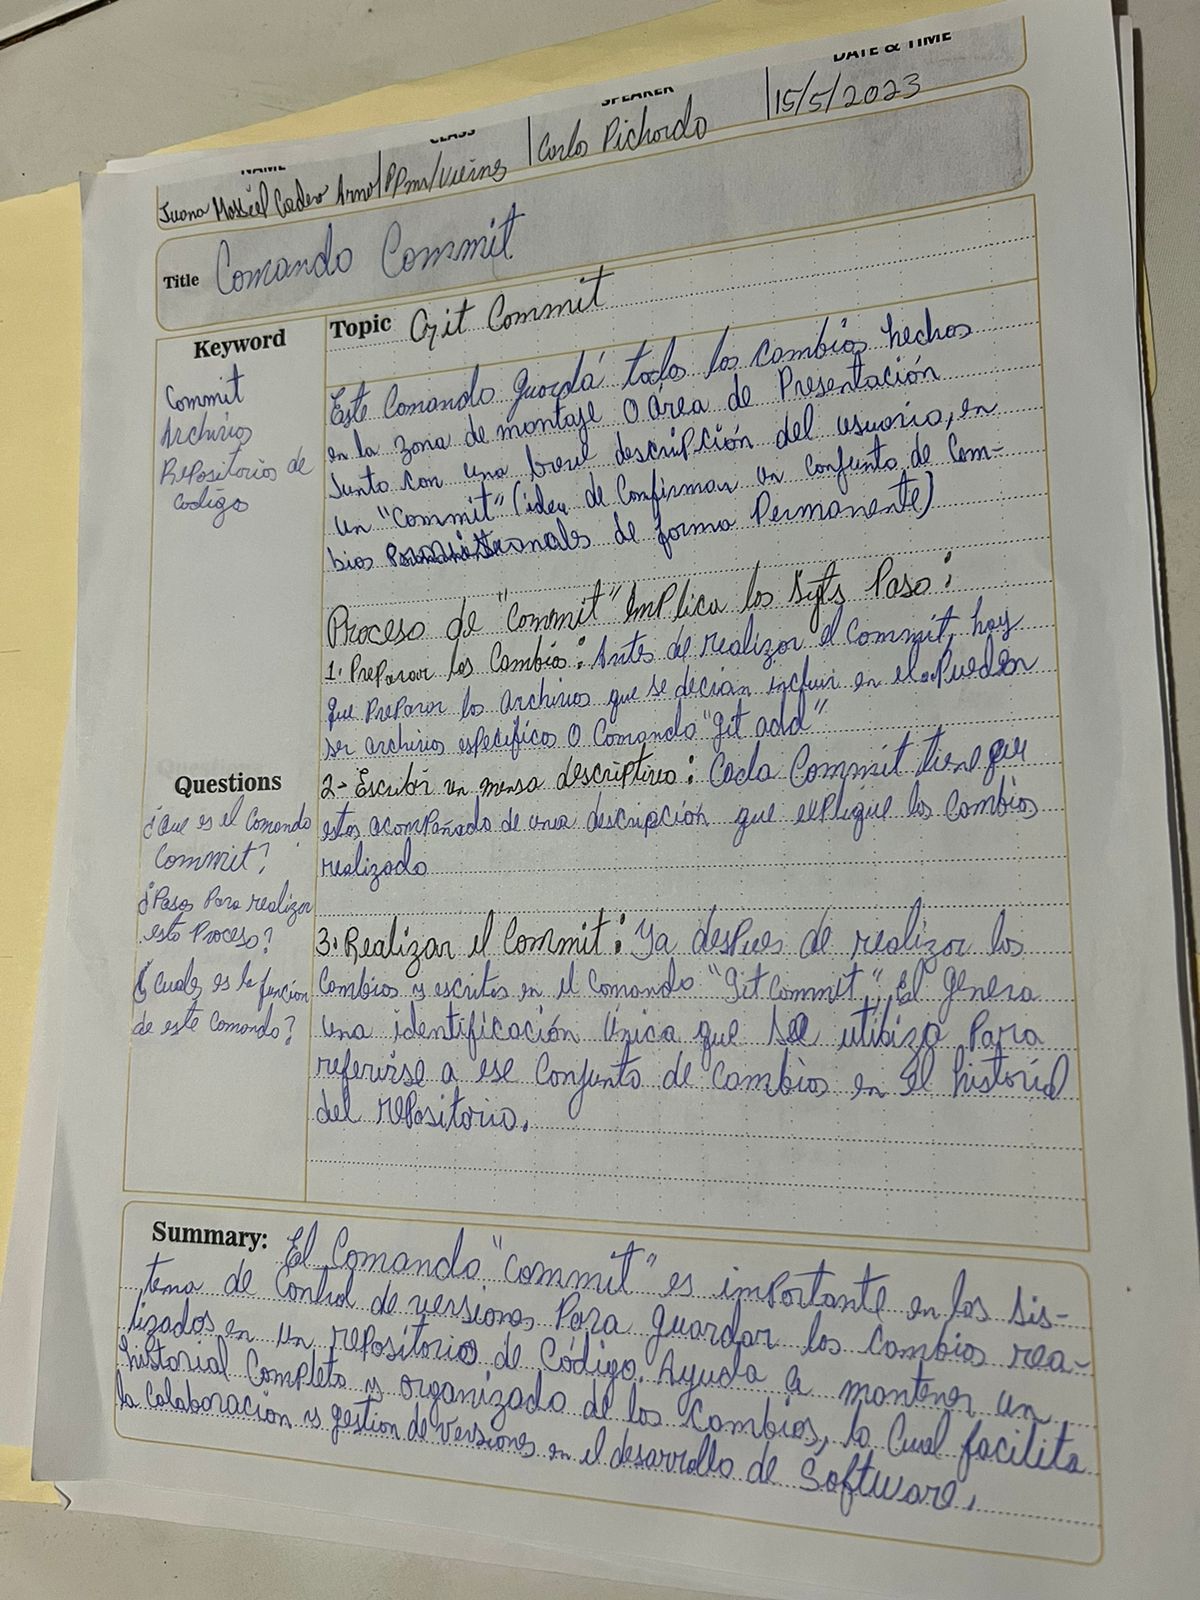 NAME
CLASS
SPEAKER
DATE & TIME
Juana
PPm/Viernes
Carlo Pichardo
15/5/2023
Title Comando Commit
Keyword
Commit
Archivios
Repositorios de
codigo
Topic Git Commit
Este Comando guardá todo los cambios hechos
en la zona de montaje O área de Presentación
Junto con una breve descripción del usuario, en
un "Commit" (idea de Confirmar un conjunto de Cam-
bios de forma Permanente)
Proceso de "Commit" implica los Sgts Paso:
1. Preparar los Cambios: Antes de realizar el Commit, hay
que Preparar los archivios que se decian incluir en el. Pueden
ser archivios especificos O Comando "git add"
2- Escribir un mensa descriptivo: Cada Commit tiene que
estas acompañado de una descripción que explique los Cambios
realizado
3. Realizar el Commit: Ya despues de realizar los
Cambios y escritos en el Comando "Git Commit", El genera
una identificación Única que se utibiza Para
referirse a ese Conjunto de Cambios en el historial
del repositorio.
Questions
¿Que es el Comando
Commit?
¿Pasos Para realizar
esto Proceso?
¿Cual es la funcion
de este Comando?
Summary: El Comando "Commit" es importante en los Sis-
tema de Control de versiones Para guardar los cambios rea-
lizados en un repositorio de Código. Ayuda a mantener un
historial Completo y organizado de los Cambios, lo Cual facilita
la Colaboración y gestion de versiones en el desarrollo de Software.